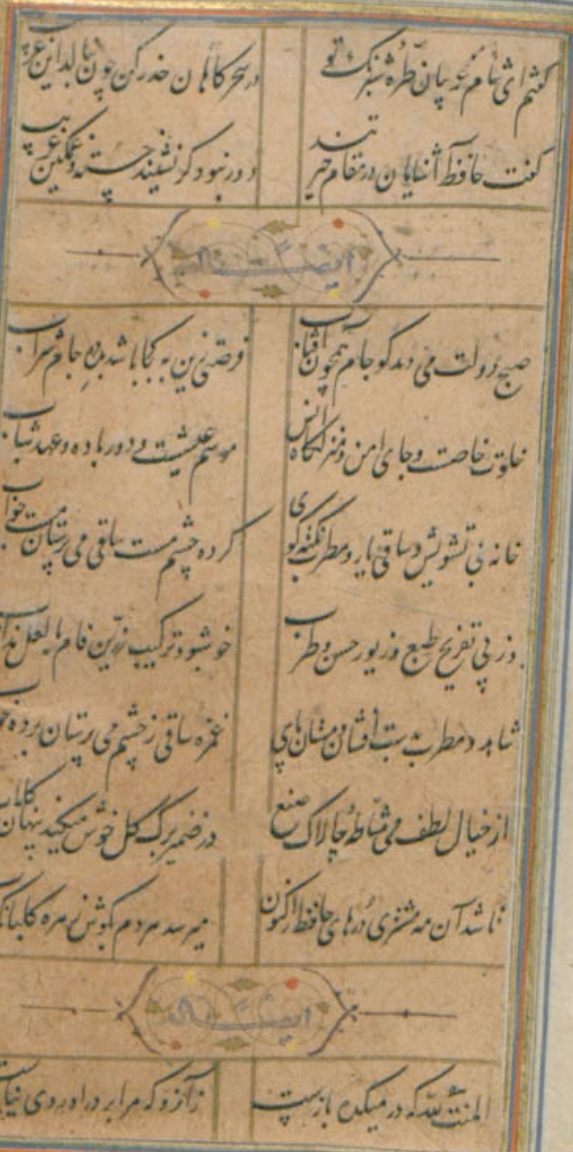 گفتم ای شام غریبان طره شبرنگ تو در سحرگاهان حذر کن چون بنالد این غریب
گفت حافظ آشنایان در مقام حیرتند دور نبود گر نشیند خسته و غمگین غریب
ایضاً له
صبح دولت می دمد کو جام همچون آفتاب فرصتی زین به کجا باشد بده جام شراب
خلوت خاصست و جای امن و نزهتگاه انس موسم عیشست و دور باده و عهد شباب
خانه بی تشویش و ساقی یار و مطرب نکته گوی کرده چشم مست ساقی می پرستان مست خواب
در پی تفریح طبع و زیور حسن و طرب خوشبود ترکیب زرین فام با لعل مذاب
شاهد و مطرب بدست افشان و مستان پای غمزه ساقی ز چشم می پرستان برده
از خیال لطف می مشاطه چالاک صنع در ضمیر برگ گل خوش میکند پنهان گلاب
تا شد آن مه مشتری درهای حافظ را کنون میرسد هر دم بگوش زهره گلبانگ
ایضاً له
المنة لله که در میکده بازست زآنرو که مرا بر در او روی نیاز